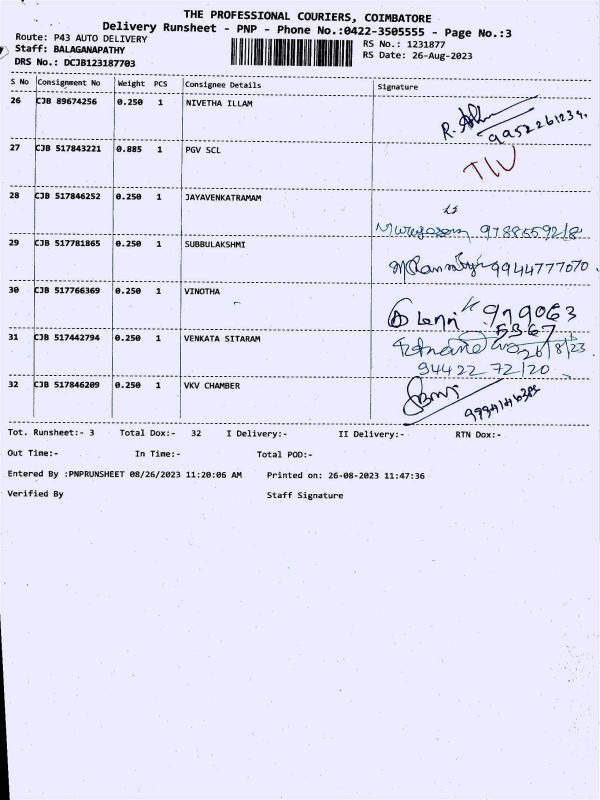 THE PROFESSIONAL COURIERS, COIMBATORE
Delivery Runsheet - PNP - Phone No.:0422-3505555 - Page No.:3
Route: P43 AUTO DELIVERY
RS No.: 1231877
Staff: BALAGANAPATHY
RS Date: 26-Aug-2023
DRS No.: DCJB123187703
S No Consignment No Weight PCS Consignee Details Signature
26 CJB 89674256 0.250 1 NIVETHA ILLAM
9952261234.
27 CJB 517843221 0.885 1 PGV SCL
28 CJB 517846252 0.250 1 JAYAVENKATRAMAM
29 CJB 517781865 0.250 1 SUBBULAKSHMI
9944777070.
30 CJB 517766369 0.250 1 VINOTHA
979063
5367
31 CJB 517442794 0.250 1 VENKATA SITARAM
26/8/23
94422 72120
32 CJB 517846209 0.250 1 VKV CHAMBER
Tot. Runsheet:- 3 Total Dox:- 32 I Delivery:- II Delivery:- RTN Dox:-
Out Time:- In Time:- Total POD:-
Entered By :PNPRUNSHEET 08/26/2023 11:20:06 AM Printed on: 26-08-2023 11:47:36
Verified By Staff Signature